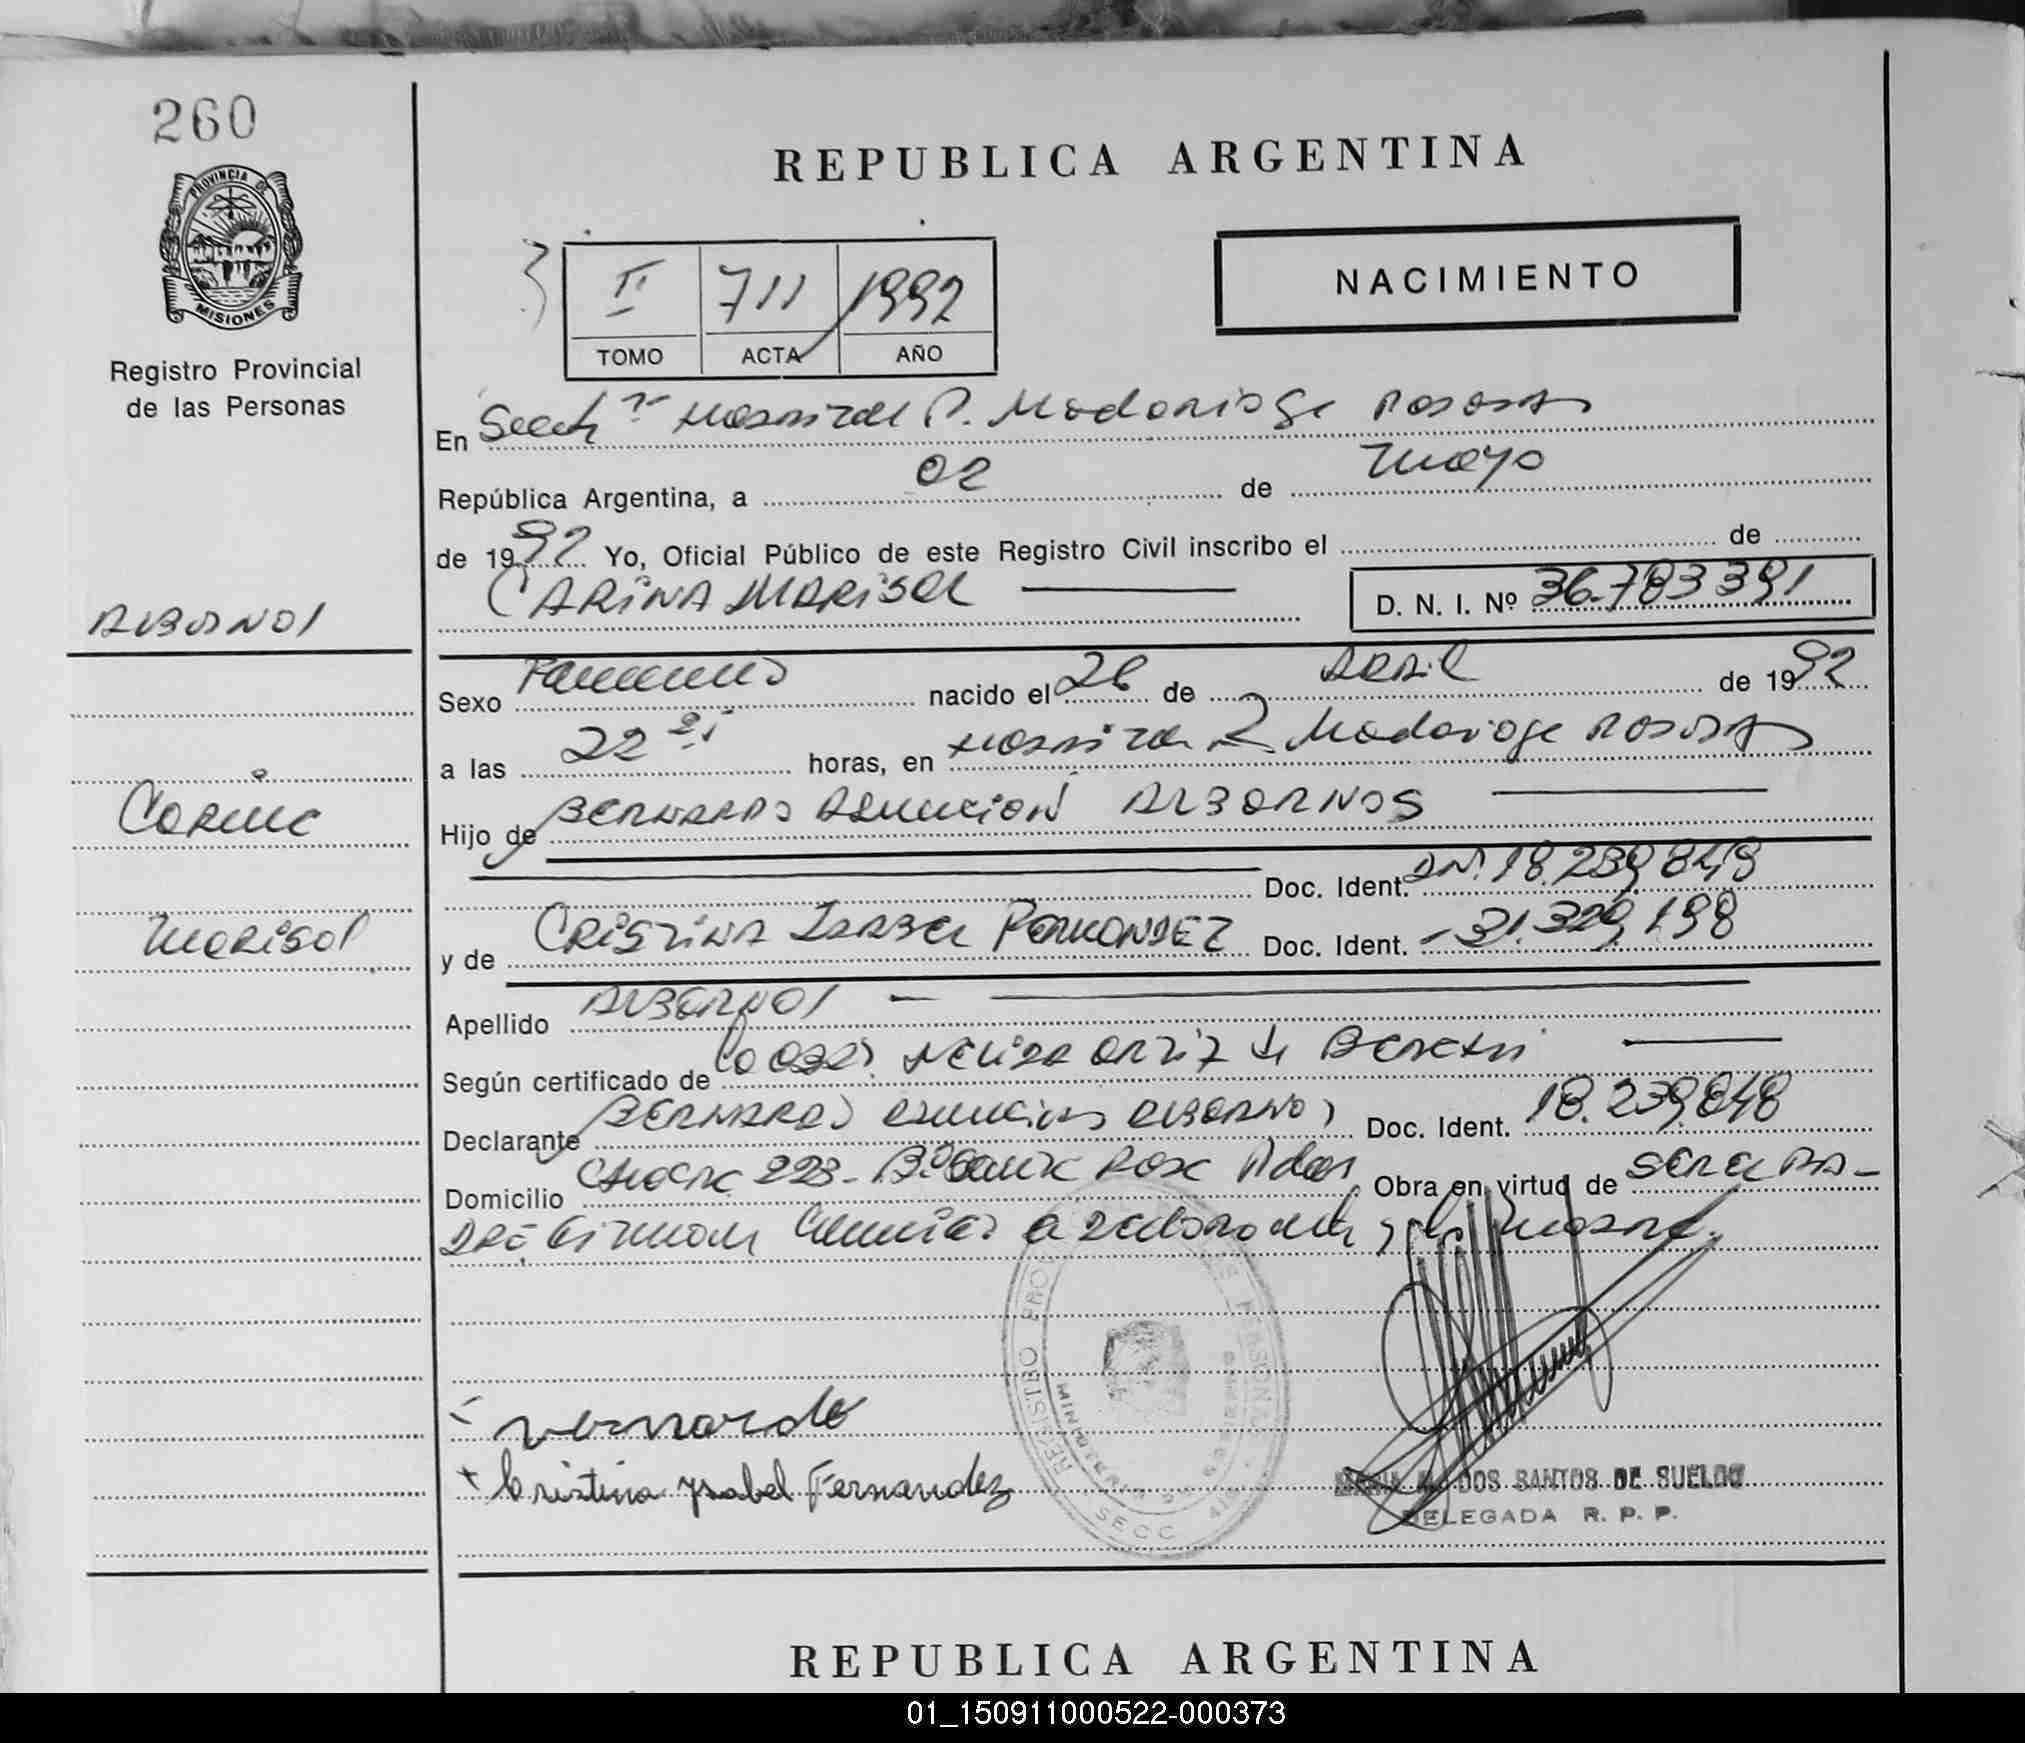 260
PROVINCIA DE
MISIONES
Registro Provincial
de las Personas
REPUBLICA ARGENTINA
II 711 1992
TOMO ACTA AÑO
NACIMIENTO
En Secc Hospital R. Madariaga Posadas
República Argentina, a 02 de Mayo
de 1992 Yo, Oficial Público de este Registro Civil inscribo el de
CARINA MARISOL
D. N. I. Nº 36.783391
ALBORNOS
Sexo Femenino nacido el 26 de Abril de 1992
a las 22 horas, en Hospital R. Madariaga Posadas
Carina
Hijo de BERNARDO ASUNCION ALBORNOS
Doc. Ident. DNI. 18.239.848
Marisol
y de CRISTINA ISABEL FERNANDEZ Doc. Ident. 31.329.198
Apellido ALBORNOS
Según certificado de la Obst. Nelida Ortiz de
Declarante BERNARDO Asuncion Albornos Doc. Ident. 18.239.848
Domicilio 223 - Bº Santa Rosa Pdas Obra en virtud de ser el pa-
dre Firman a y la madre.
Vernardo
Cristina Ysabel Fernandez
REGISTRO
MINISTERIO DE GOBIERNO
SECC
DOS SANTOS DE SUELDO
DELEGADA R. P. P.
REPUBLICA ARGENTINA
01_150911000522-000373